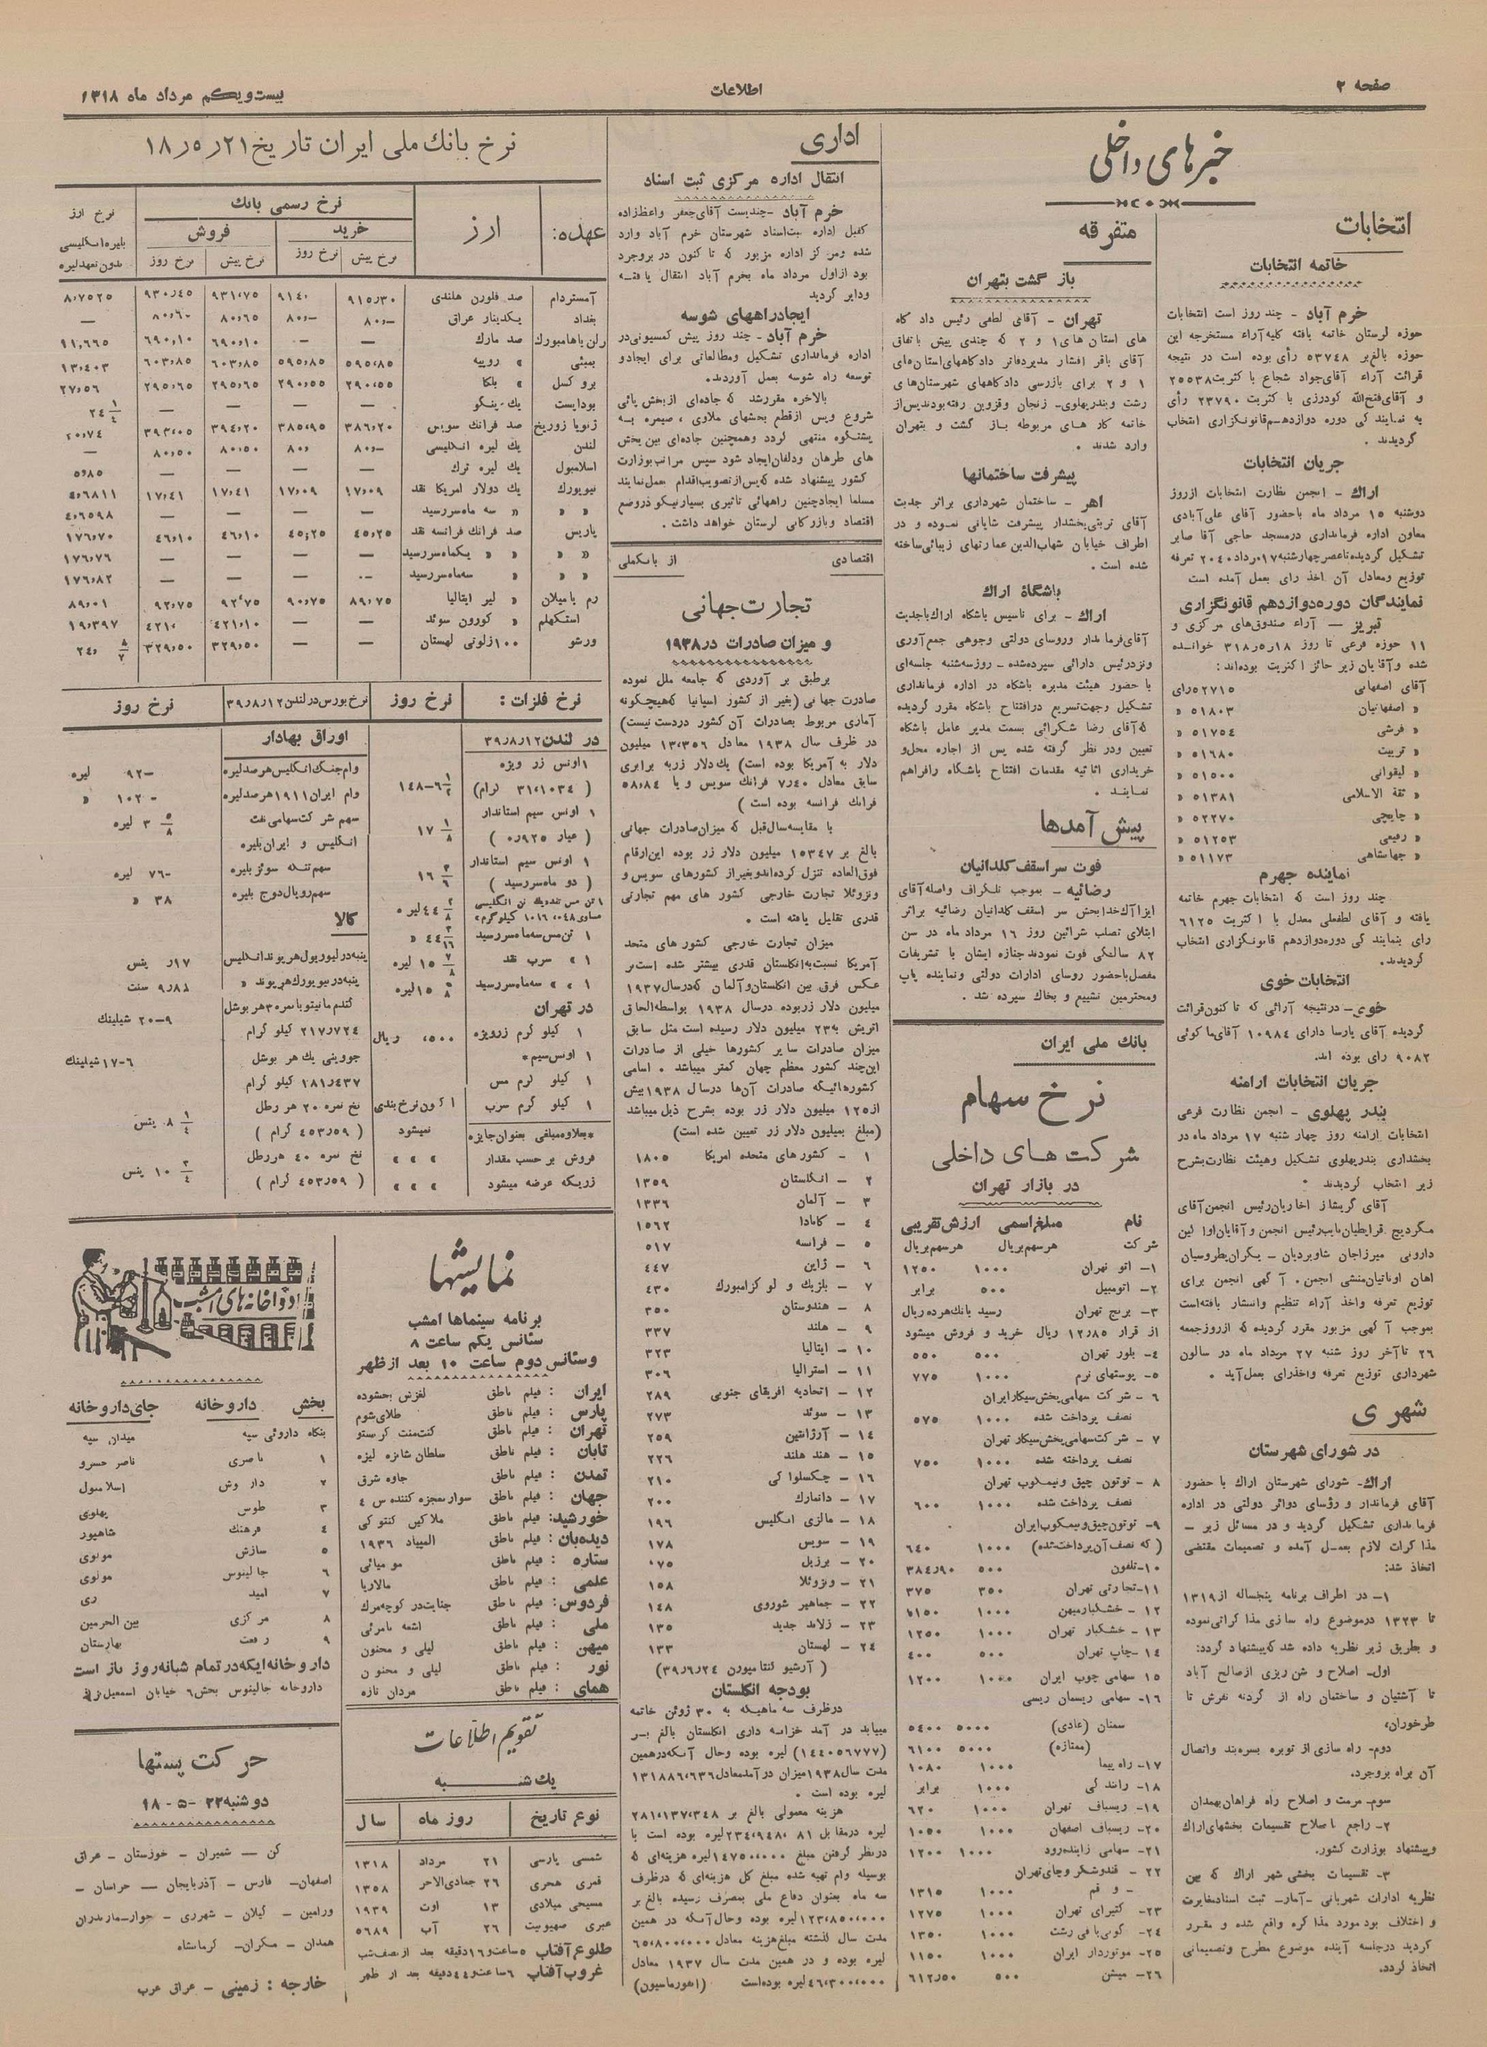 صفحه ۲
اطلاعات
بیست و یکم مرداد ماه ۱۳۱۸
خبرهای داخلی
انتخابات
خاتمه انتخابات
خرم آباد - چند روز است انتخابات
حوزه لرستان خاتمه یافته کلیه آراء مستخرجه این
حوزه بالغ بر ۵۳۷۴۸ رأی بوده است در نتیجه
قرائت آراء آقای جواد شجاع با کثریت ۲۵۵۳۸
و آقای فتح‌الله کودرزی با کثریت ۲۳۷۹۰ رأی
به نمایندگی دوره دوازدهم قانونگزاری انتخاب
گردیدند .
جریان انتخابات
اراك - انجمن نظارت انتخابات از روز
دوشنبه ۱۵ مرداد ماه با حضور آقای علی آبادی
معاون اداره فرمانداری در مسجد حاجی آقا صابر
تشکیل گردیده تا عصر چهارشنبه ۱۷ مرداد ۲۰۴۰ تعرفه
توزیع ومعادل آن اخذ رای بعمل آمده است
نمایندگان دوره دوازدهم قانونگزاری
تبریز — آراء صندوق‌های مرکزی و
۱۱ حوزه فرعی تا روز ۱۸ر۵ر۳۱۸ خوانده
شده وآقایان زیر حائز اکثریت بوده‌اند :
آقای اصفهانی ۵۲۷۱۵ رای
» اصفهانیان ۵۱۸۰۳ »
» فرشی ۵۱۷۵۴ »
» تربیت ۵۱۶۸۰ »
» لیقوانی ۵۱۵۰۰ »
» ثقة الاسلامی ۵۱۳۸۱ »
» چایچی ۵۲۲۷۰ »
» رفیعی ۵۱۲۵۳ »
» جهانشاهی ۵۱۱۷۳ »
نماینده جهرم
چند روز است که انتخابات جهرم خاتمه
یافته و آقای لطفعلی معدل با اکثریت ۶۱۲۵
رای بنمایندگی دوره دوازدهم قانونگزاری انتخاب
گردیدند.
انتخابات خوی
خوی - در نتیجه آرائی که تا کنون قرائت
گردیده آقای پارسا دارای ۱۰۹۸۴ آقای ماکوئی
۹۰۸۲ رای بوده اند.
جریان انتخابات ارامنه
بندر پهلوی - انجمن نظارت فرعی
انتخابات ارامنه روز چهار شنبه ۱۷ مرداد ماه در
بخشداری بندرپهلوی تشکیل وهیئت نظارت بشرح
زیر انتخاب گردیدند
توزیع تعرفه واخذ آراء تنظیم وانتشار یافته‌است
بموجب آگهی مزبور مقرر گردیده که از روز جمعه
۲۶ تا آخر روز شنبه ۲۷ مرداد ماه در سالون
شهرداری توزیع تعرفه واخذرای بعمل‌آید .
شهری
در شورای شهرستان
اراك - شورای شهرستان اراك با حضور
آقای فرماندار و رؤسای دوائر دولتی در اداره
فرمانداری تشکیل گردید و در مسائل زیر -
مذاکرات لازم بعمل آمده و تصمیمات مقتضی
اتخاذ شد:
۱- در اطراف برنامه پنجساله از ۱۳۱۹
تا ۱۳۲۳ درموضوع راه سازی مذاکراتی نموده
و بطریق زیر نظریه داده شد که پیشنهاد گردد:
اول- اصلاح و شن ریزی از صالح آباد
تا آشتیان و ساختمان راه از گردنه نقرش تا
طرخوران.
دوم- راه سازی از توبره بسره‌بند واتصال
آن براه بروجرد.
سوم- مرمت و اصلاح راه فراهان بهمدان
۲- راجع باصلاح تقسیمات بخشهای اراك
وپیشنهاد بوزارت کشور.
۳- تقسیمات بخشی شهر اراك که بین
نظریه ادارات شهربانی - آمار- ثبت اسناد مغایرت
و اختلاف بود مورد مذاکره واقع شده و مقرر
گردید درجلسه آینده موضوع مطرح وتصمیماتی
اتخاذ گردد.
متفرقه
باز گشت بتهران
تهران - آقای لطفی رئیس دادگاه
های استان های ۱ و ۲ که چندی پیش باتفاق
آقای باقر افشار مدیردفاتر دادگاههای استان‌های
۱ و ۲ برای بازرسی دادگاههای شهرستان‌های
رشت وبندرپهلوی - زنجان وقزوین رفته بودند پس از
خاتمه کار های مربوطه باز گشت و بتهران
وارد شدند .
پیشرفت ساختمانها
اهر - ساختمان شهرداری براثر جدیت
آقای تربتی بخشدار پیشرفت شایانی نموده و در
اطراف خیابان شهاب‌الدین عمارتهای زیبائی ساخته
شده است .
باشگاه اراك
اراك - برای تاسیس باشگاه اراك باجدیت
آقای فرماندار وروسای دولتی وجوهی جمع آوری
ونزد رئیس دارائی سپرده شده - روز سه شنبه جلسه‌ای
با حضور هیئت مدیره باشگاه در اداره فرمانداری
تشکیل وجهت تسریع درافتتاح باشگاه مقرر گردیده
که آقای رضا شکرائی بسمت مدیر عامل باشگاه
تعیین ودر نظر گرفته شده پس از اجاره محل و
خریداری اثاثیه مقدمات افتتاح باشگاه رافراهم
نمایند .
پیش آمدها
فوت سر اسقف کلدانیان
رضائیه - بموجب تلگراف واصله آقای
ایزاک خدابخش سر اسقف کلدانیان رضائیه براثر
ابتلای تصلب شرائین روز ۱۶ مرداد ماه در سن
۸۲ سالگی فوت نمودند جنازه ایشان با تشریفات
مفصل با حضور روسای ادارات دولتی ونماینده پاپ
ومحترمین تشییع و بخاك سپرده شد .
بانك ملی ایران
نرخ سهام
شرکت های داخلی
در بازار تهران
نام مبلغ اسمی ارزش تقریبی
شرکت هر سهم بریال هر سهم بریال
۱- اتو تهران ۱۰۰۰ ۱۲۵۰
۲- اتومبیل ۵۰۰ برابر
۳- برنج تهران رسید بانك هر ده ریال
از قرار ۱۲ر۸۵ ریال خرید و فروش میشود
۴- بلور تهران ۵۰۰ ۵۵۰
۵- پوستهای نرم ۱۰۰۰ ۷۷۵
۶ - شرکت سهامی پخش سیگار ایران
نصف پرداخت شده ۱۰۰۰ ۵۷۵
۷ - شرکت سهامی پخش سیگار تهران
نصف پرداخته شده ۱۰۰۰ ۷۵۰
۸ - توتون چپق و نیمکوب تهران
نصف پرداخت شده ۱۰۰۰ ۶۰۰
۹- توتون چپق و نیمکوب ایران
(که نصف آن پرداخت شده) ۱۰۰۰ ۶۴۰
۱۰- تلفون ۵۰۰ ۳۸۴ر۹۰
۱۱- تجارتی تهران ۳۵۰ ۳۷۵
۱۲ - خشکبار میهن ۱۰۰۰
۱۳ - خشکبار تهران ۱۰۰۰ ۱۲۵۰
۱۴ - چاپ تهران ۵۰۰ ۴۰۰
۱۵ - سهامی چوب ایران ۱۰۰۰ ۱۲۰۰
۱۶- سهامی ریسمان ریسی
سمنان (عادی) ۵۰۰۰ ۵۴۰۰
(ممتازه) ۵۰۰۰ ۶۱۰۰
۱۷- راه پیما ۱۰۰۰ ۱۰۸۰
۱۸- رانندگی ۱۰۰۰ برابر
۱۹- ریسباف تهران ۱۰۰۰ ۶۲۰
۲۰- ریسباف اصفهان ۱۰۰۰ ۱۰۵۰
۲۱- سهامی زاینده‌رود ۱۰۰۰ ۱۲۰۰
۲۲ - قندوشکر وچای تهران
- و قم ۱۰۰۰ ۱۳۱۵
۲۳- کتیرای تهران ۱۰۰۰ ۱۲۷۵
۲۴- گونی بافی رشت ۱۰۰۰ ۱۳۵۰
۲۵- موتوردار ایران ۱۰۰۰ ۱۱۵۰
۲۶- میشن ۵۰۰ ۶۱۲ر۵۰
اداری
انتقال اداره مرکزی ثبت اسناد
خرم آباد - چندیست آقای جعفر واعظ‌زاده
کفیل اداره ثبت اسناد شهرستان خرم آباد وارد
شده ومرکز اداره مزبور که تا کنون در بروجرد
بود ازاول مرداد ماه بخرم آباد انتقال یافته
ودایر گردید
ایجاد راههای شوسه
خرم آباد - چند روز پیش کمسیونی در
اداره فرمانداری تشکیل ومطالعاتی برای ایجاد و
توسعه راه شوسه بعمل آوردند.
بالاخره مقرر شد که جاده‌ای از بخش پائی
شروع وپس از قطع بخشهای ملاوی ، صیمره به
پشتکوه منتهی گردد وهمچنین جاده‌ای بین بخش
های طرهان ودلفان ایجاد شود سپس مراتب بوزارت
کشور پیشنهاد شده که پس از تصویب اقدام عمل نمایند
مسلما ایجاد چنین راههائی تاثیری بسیار نیکو در وضع
اقتصاد وبازرگانی لرستان خواهد داشت .
اقتصادی از بانکملی
تجارت جهانی
و میزان صادرات در ۱۹۳۸
برطبق بر آوردی که جامعه ملل نموده
صادرت جهانی (بغیر از کشور اسپانیا که هیچگونه
آماری مربوط بصادرات آن کشور دردست نیست)
در ظرف سال ۱۹۳۸ معادل ۱۳٬۳۵۶ میلیون
دلار به آمریکا بوده است) یك دلار زر به برابری
سابق معادل ۷٫۴۰ فرانك سویس و یا ۵۸٫۸۴
فرانك فرانسه بوده است )
با مقایسه سال قبل که میزان صادرات جهانی
بالغ بر ۱۵۳۴۷ میلیون دلار زر بوده این ارقام
فوق العاده تنزل کرده‌اند و بغیر از کشورهای سویس و
ونزوئلا تجارت خارجی کشور های مهم تجارتی
قدری تقلیل یافته است .
میزان تجارت خارجی کشور های متحد
آمریکا نسبت به انگلستان قدری بیشتر شده است بر
عکس فرق بین انگلستان و آلمان که در سال ۱۹۳۷
میلیون دلار زر بوده درسال ۱۹۳۸ بواسطه الحاق
اتریش به ۲۳ میلیون دلار رسیده است مثل سابق
میزان صادرات سایر کشورها خیلی از صادرات
این چند کشور معظم جهان کمتر میباشد . اسامی
کشورهائیکه صادرات آن‌ها درسال ۱۹۳۸ بیش
از ۱۲۵ میلیون دلار زر بوده بشرح ذیل میباشد
(مبلغ بمیلیون دلار زر تعیین شده است)
۱ - کشور های متحده امریکا ۱۸۰۵
۲ - انگلستان ۱۳۵۹
۳ - آلمان ۱۳۳۶
۴ - کانادا ۱۵۶۲
۵ - فرانسه ۵۱۷
۶ - ژاپن ۴۴۷
۷ - بلژیك و لوکزامبورك ۴۳۰
۸ - هندوستان ۳۵۰
۹ - هلند ۳۳۷
۱۰ - ایتالیا ۳۲۳
۱۱ - استرالیا ۳۰۶
۱۲ - اتحادیه افریقای جنوبی ۲۸۹
۱۳ - سوئد ۲۷۳
۱۴ - آرژانتین ۲۵۹
۱۵ - هند هلند ۲۲۶
۱۶ - چکسلواکی ۲۱۰
۱۷ - دانمارك ۲۰۰
۱۸ - مالزی انگلیس ۱۹۶
۱۹ - سویس ۱۷۸
۲۰ - برزیل ۰۷۵
۲۱ - ونزوئلا ۱۵۸
۲۲ - جماهیر شوروی ۱۴۸
۲۳ - زلاند جدید ۱۳۵
۲۴ - لهستان ۱۳۳
بودجه انگلستان
درظرف سه ماهیکه به ۳۰ ژوئن خاتمه
مییابد در آمد خزانه داری انگلستان بالغ بـر
(۱۴۴۰۵۶۷۷۷) لیره بوده وحال آنکه درهمین
مدت سال ۱۹۳۸ میزان درآمد معادل ۱۳۱۸۸۶٬۶۳۶
لیره بوده است .
هزینه معمولی بالغ بر ۲۸۱٬۱۳۷٬۳۴۸
درنظر گرفتن مبلغ ۱۴۷۵۰٬۰۰۰ لیره هزینه‌ای که
بوسیله وام تهیه شده مبلغ کل هزینه‌ای که درظرف
سه ماه بعنوان دفاع ملی بمصرف رسیده بالغ بر
۱۲۳٬۸۵۰٬۰۰۰ لیره بوده وحال آنکه در همین
مدت سال گذشته مبلغ هزینه معادل ۶۵٬۸۰۰٬۰۰۰
لیره بوده و در همین مدت سال ۱۹۳۷ معادل
۴۶٬۳۰۰٬۰۰۰ لیره بوده‌است (انفورماسیون)
نرخ بانك ملی ایران تاریخ ۲۱ر۵ر۱۸
عهده: ارز نرخ رسمی بانك نرخ ارز
خرید فروش بلیره انگلیسی
نرخ پیش نرخ روز نرخ پیش نرخ روز بدون تعهد لیره
آمستردام صد فلورن هلندی ۹۱۵٫۳۰ ۹۱۴۰ ۹۳۱٫۷۵ ۹۳۰٫۴۵ ۸٫۷۵۲۵
بغداد یکدینار عراق ۸۰٫– ۸۰٫– ۸۰٫۶۵ ۸۰٫۶۰ —
برلن یا هامبورك صد مارك — — ۶۹۰٫۱۰ ۶۹۰٫۱۰ ۱۱٫۶۶۵
بمبئی » روپیه ۵۹۵٫۸۵ ۵۹۵٫۸۵ ۶۰۳٫۸۵ ۶۰۳٫۸۵ ۱۳٫۴۰۳
بروکسل » بلکا ۲۹۰٫۵۵ ۲۹۰٫۵۵ ۲۹۵٫۶۵ ۲۹۵٫۶۵ ۲۷٫۵۶
بوداپست یك پنگو — — — — ۲۴ ۱/۴
ژنویا زوریخ صد فرانك سویس ۳۸۶٫۲۰ ۳۸۵٫۹۵ ۳۹۴٫۲۰ ۳۹۳٫۰۵ ۲۰٫۷۴
لندن یك لیره انگلیسی ۸۰٫– ۸۰٫ ۸۰٫۵۰ ۸۰٫۵۰ —
اسلامبول یك لیره ترك — — — — ۵٫۸۵
نیویورك یك دولار امریکا نقد ۱۷٫۰۹ ۱۷٫۰۹ ۱۷٫۴۱ ۱۷٫۴۱ ۴٫۶۸۱۱
» » » سه ماه سررسید — — — — ۴٫۶۵۹۸
پاریس صد فرانك فرانسه نقد ۴۵٫۲۵ ۴۵٫۲۵ ۴۶٫۱۰ ۴۶٫۱۰ ۱۷۶٫۷۰
» » » یکماه سررسید — — — — ۱۷۶٫۷۶
» » » سه ماه سررسید — — — — ۱۷۶٫۸۲
رم یا میلان » لیر ایتالیا ۸۹٫۷۵ ۹۰٫۷۵ ۹۲٫۷۵ ۹۲٫۷۵ ۸۹٫۰۱
استکهلم » کورون سوئد — — ۴۲۱٫۱۰ ۴۲۱۰ ۱۹٫۳۹۷
ورشو ۱۰۰ زلوتی لهستان — — ۳۲۹٫۵۰ ۳۲۹٫۵۰
نرخ فلزات : نرخ روز
در لندن ۳۹٫۸٫۱۲
۱ اونس زر ویژه
(۳۱٫۱۰۳۴ گرام) ۱۴۸-۶ ۱/۲
۱ اونس سیم استاندار
( عیار ۰٫۹۲۵ ) ۱۷ ۱/۸
۱ اونس سیم استاندار
( دو ماه سررسید )
۱ تن مس سه ماه سررسید
۱ » سرب نقد ۱۵ ۷/۸ لیره
۱ » » سه ماه سررسید
در تهران
۱ کیلو گرم زرویژه
۱ اونس سیم*
۱ کیلو گرم مس
۱ کیلو گرم سرب اکنون نرخ بندی
*بعلاوه مبلغی بعنوان جایزه نمیشود
فروش بر حسب مقدار » » »
زریکه عرضه میشود » » »
نرخ بورس در لندن ۳۹٫۸٫۱۲ نرخ روز
اوراق بهادار
وام جنك انگلیس هر صد لیره ۹۲- لیره
وام ایران ۱۹۱۱ هر صد لیره ۱۰۲- »
سهم شرکت سهامی نفت ۳ ۵/۸ لیره
انگلیس و ایران بلیره
سهم تنگه سوئز بلیره ۷۶- لیره
سهم رویال دوج بلیره ۳۸ »
کالا
پنبه در لیورپول هر پوند انگلیس
پنبه در نیویورك هر پوند »
گندم مانیتوبا نمره ۳ هر بوشل ۲۰-۹ شیلینك
۲۱۷٫۷۲۴ کیلو گرام
جو ویتی یك هر بوشل ۱۷-۶ شیلینك
۱۸۱٫۴۳۷ کیلو گرام
نخ نمره ۲۰ هر رطل ۸ ۱/۴ پنس
( ۴۵۳٫۵۹ گرام )
نخ نمره ۴۰ هر رطل ۱۰ ۳/۴ پنس
( ۴۵۳٫۵۹ گرام )
نمایشها
برنامه سینماها امشب
سئانس یکم ساعت ۸
وسئانس دوم ساعت ۱۰ بعد از ظهر
ایران : فیلم ناطق لغزش بخشوده
پارس : فیلم ناطق طلای شوم
تهران : فیلم ناطق کنت منت کریستو
تابان : فیلم ناطق سلطان شانزه لیزه
تمدن : فیلم ناطق جاوه شرق
جهان : فیلم ناطق سوار معجزه کننده س ٤
خورشید: فیلم ناطق ملاکین کنتوکی
دیده‌بان : فیلم ناطق المپیاد ۱۹۳۶
ستاره : فیلم ناطق مومیائی
علمی : فیلم ناطق مالاریا
فردوس : فیلم ناطق جنایت در کوچه مرك
ملی : فیلم ناطق اشعه نامرئی
میهن : فیلم ناطق لیلی و مجنون
نور : فیلم ناطق لیلی و مجنون
همای : فیلم ناطق مردان تازه
تقویم اطلاعات
یك شنبه
نوع تاریخ روز ماه سال
شمسی پارسی ۲۱ مرداد ۱۳۱۸
قمری هجری ۲۶ جمادی‌الاخر ۱۳۵۸
مسیحی میلادی ۱۳ اوت ۱۹۳۹
عبری صهیونیت ۲۶ آب ۵۶۸۹
طلوع آفتاب ۵ ساعت و ۱۶ دقیقه بعد از نصف شب
غروب آفتاب ۶ ساعت و ۴۴ دقیقه بعد از ظهر
دواخانه‌های امشب
بخش داروخانه جای داروخانه
بنگاه داروئی سپه میدان سپه
۱ ناصری ناصر خسرو
۲ داریوش اسلامبول
۳ طوس پهلوی
۴ فرهنك شاهپور
۵ سازش مولوی
۶ جالینوس مولوی
۷ امید ری
۸ مرکزی بین الحرمین
۹ رفعت بهارستان
داروخانه ایکه در تمام شبانه روز باز است
داروخانه جالینوس بخش ۶ خیابان اسمعیل بزاز
حرکت پستها
دوشنبه ۲۲-۵-۱۸
کن — شمیران - خوزستان - عراق
اصفهان- فارس - آذربایجان — خراسان -
ورامین - گیلان - شهرری - خوار- مازندران
همدان - مکران- کرمانشاه
خارجه : زمینی - عراق عرب